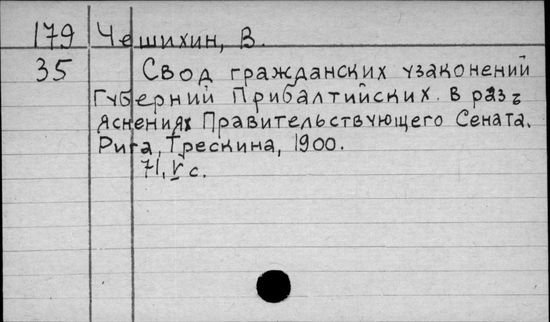 179 Чешихин, В.
35 Свод гражданских узаконений
Губерний Прибалтийских. в разъ
яснениях Правительствующего Сената.
Рига, Трескина, 1900.
71, V с.